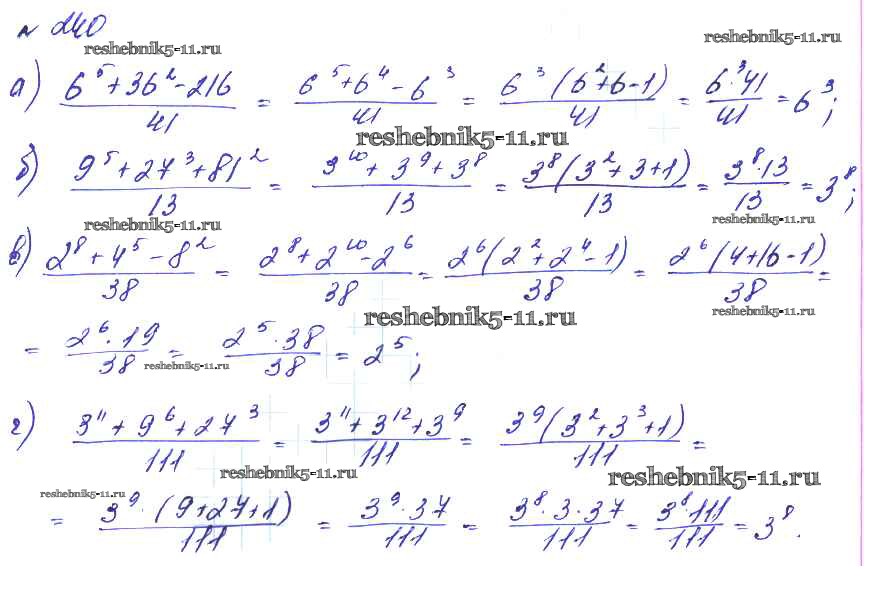 № 240
reshebnik5-11.ru
reshebnik5-11.ru
а) (6⁵ + 36² - 216)/41 = (6⁵ + 6⁴ - 6³)/41 = 6³(6² + 6 - 1)/41 = 6³·41/41 = 6³;
reshebnik5-11.ru
б) (9⁵ + 27³ + 81²)/13 = (3¹⁰ + 3⁹ + 3⁸)/13 = 3⁸(3² + 3 + 1)/13 = 3⁸·13/13 = 3⁸;
reshebnik5-11.ru
reshebnik5-11.ru
в) (2⁸ + 4⁵ - 8²)/38 = (2⁸ + 2¹⁰ - 2⁶)/38 = 2⁶(2² + 2⁴ - 1)/38 = 2⁶(4 + 16 - 1)/38 =
reshebnik5-11.ru
reshebnik5-11.ru
= 2⁶·19/38 = 2⁵·38/38 = 2⁵;
reshebnik5-11.ru
г) (3¹¹ + 9⁶ + 27³)/111 = (3¹¹ + 3¹² + 3⁹)/111 = 3⁹(3² + 3³ + 1)/111 =
reshebnik5-11.ru
reshebnik5-11.ru
reshebnik5-11.ru
= 3⁹·(9 + 27 + 1)/111 = 3⁹·37/111 = 3⁸·3·37/111 = 3⁸·111/111 = 3⁸.